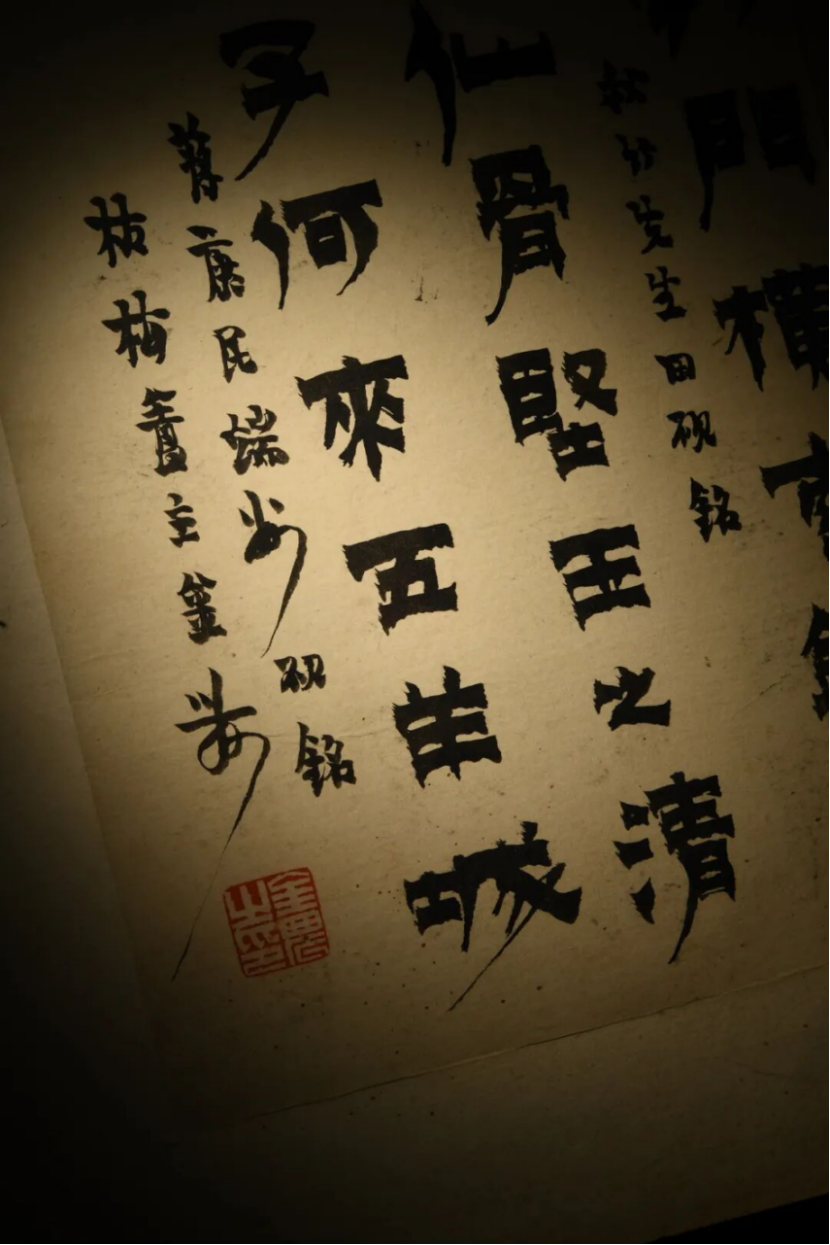 門橫
先生田硯銘
仙骨堅玉之清
子何來五羊城
蔣康民端州硯銘
枯梅盦主金農